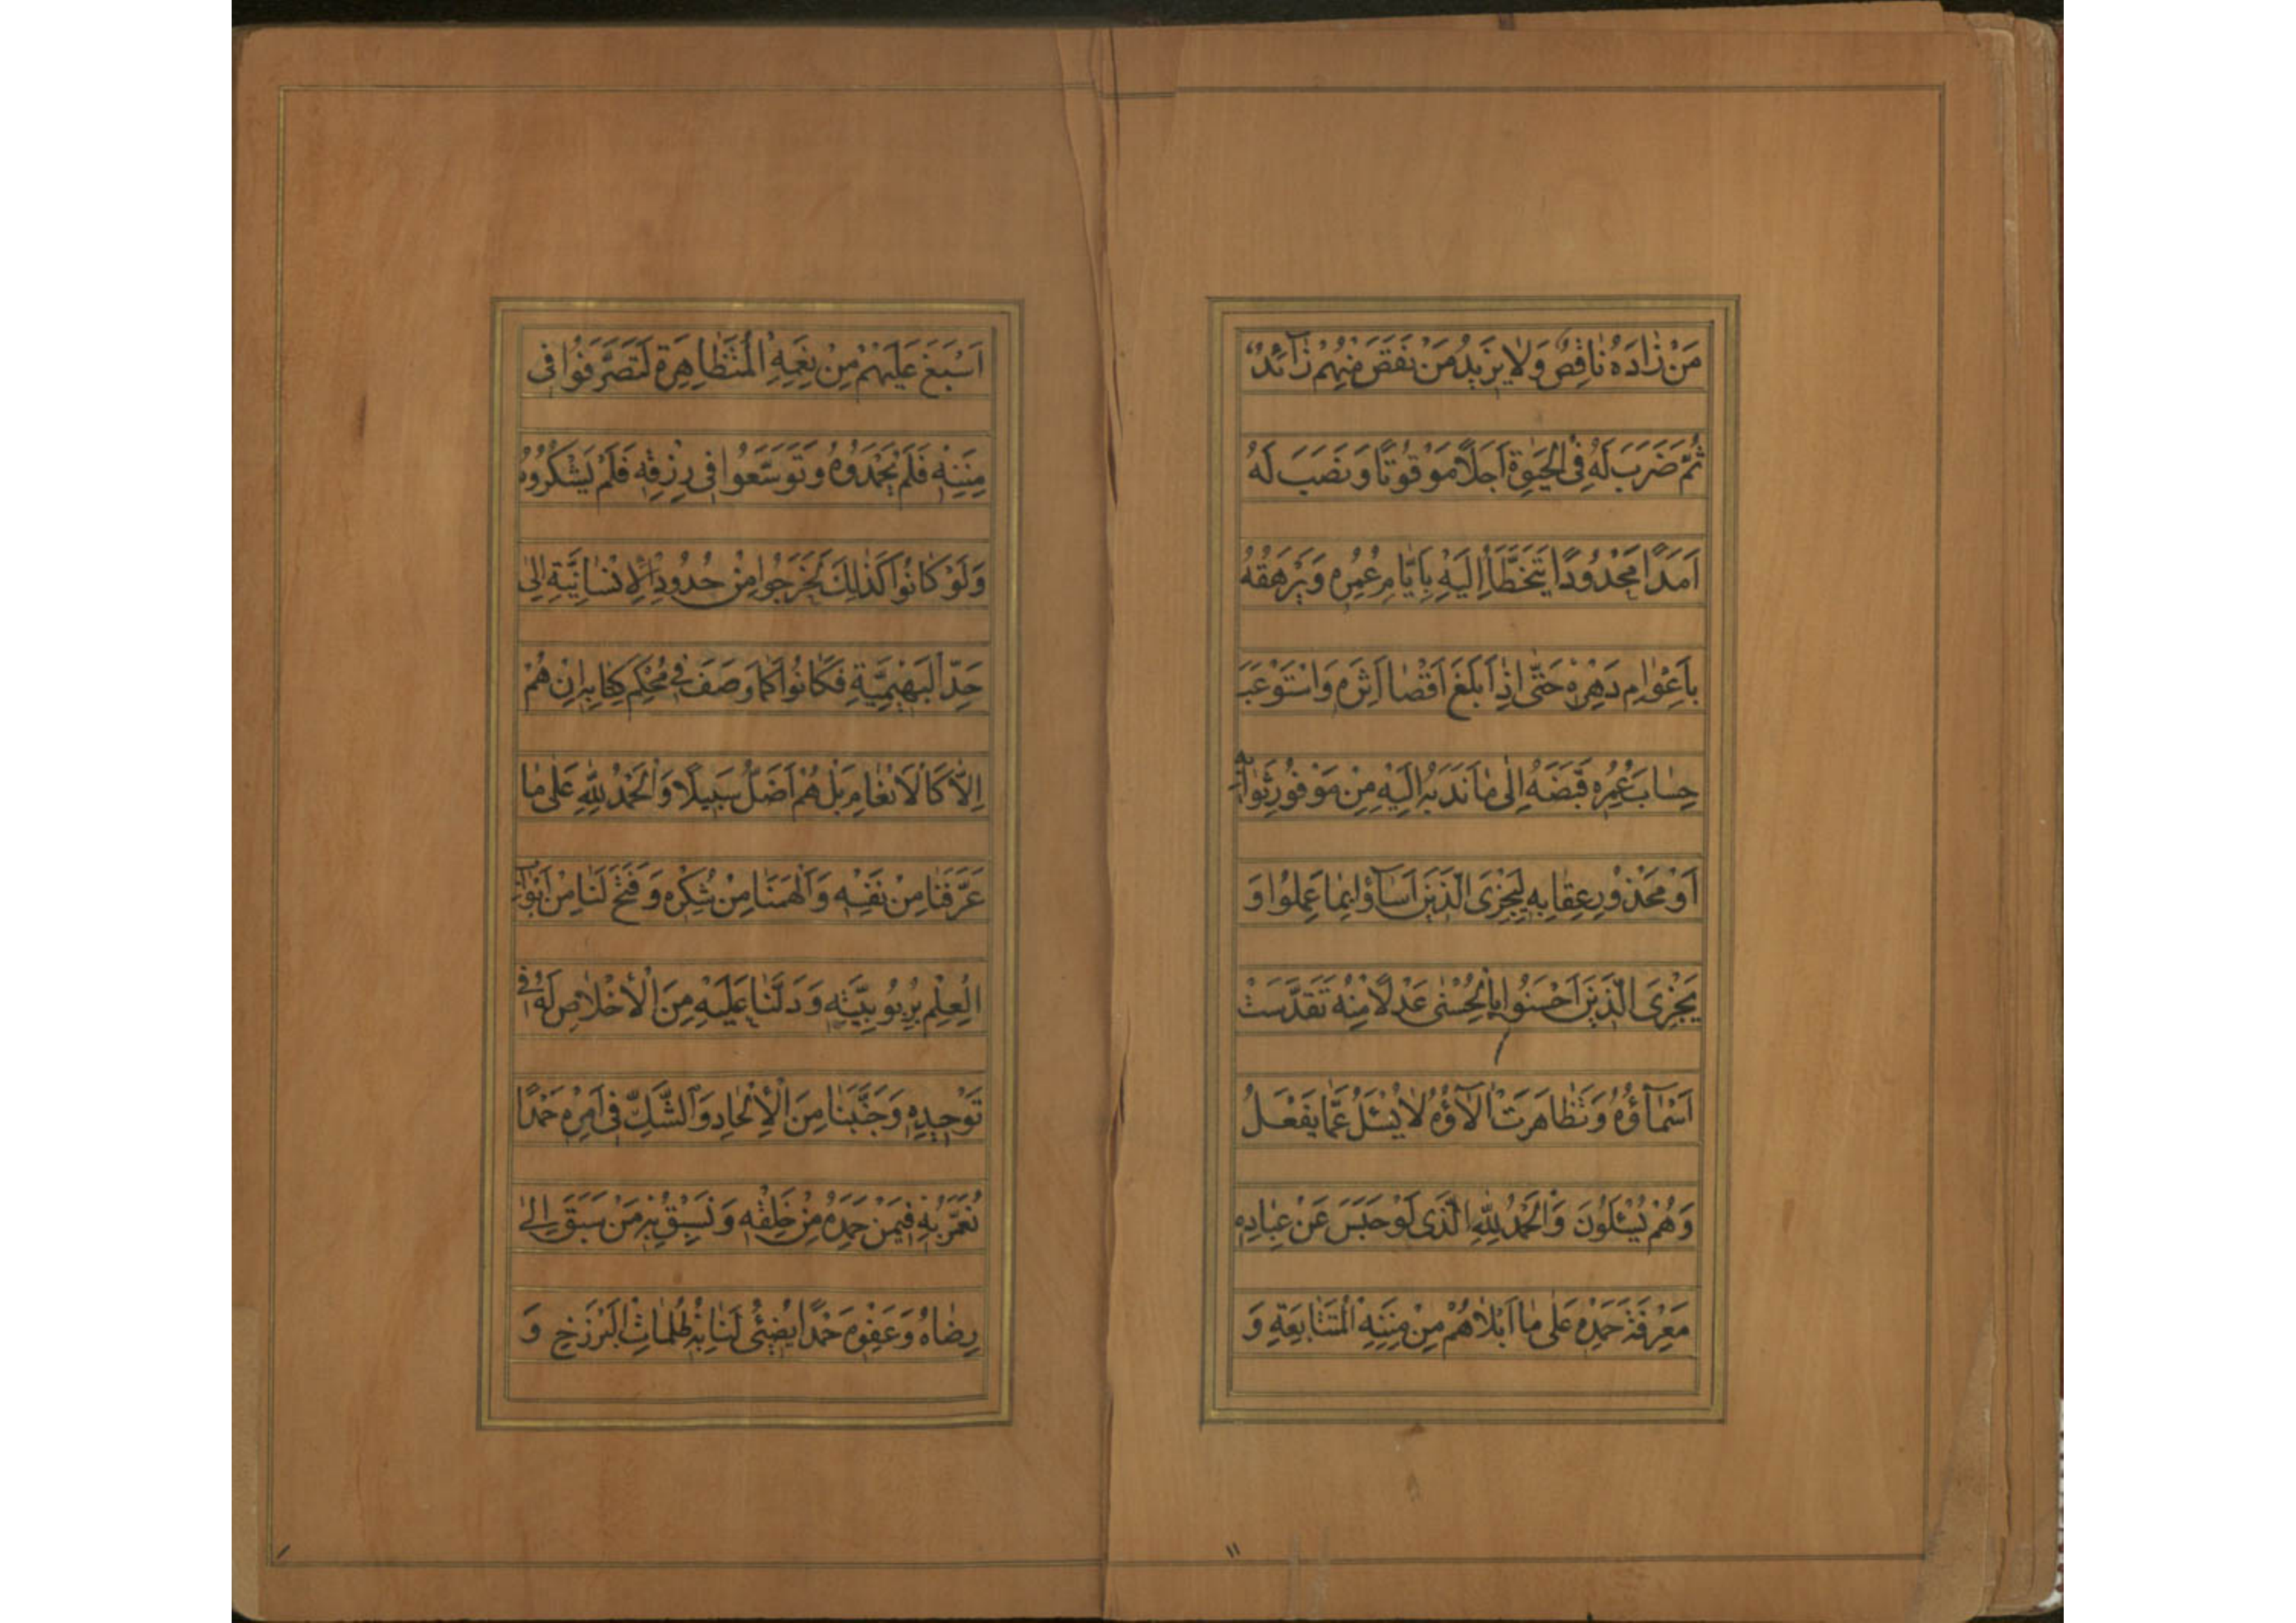 مَنْ زٰادَهُ نٰاقِصٌ وَلٰا يَزيدُ مَنْ نَقَصَ مِنْهُمْ زٰآئِدٌ
ثُمَّ ضَرَبَ لَهُ فِى الْحَيٰوةِ اَجَلًا مَوْقُوتًا وَنَصَبَ لَهُ
اَمَدًا مَحْدُودًا يَتَخَطَّاُ اِلَيْهِ بِاَيّٰامِ عُمُرِهِ وَيَرْهَقُهُ
بِاَعْوٰامِ دَهْرِهِ حَتّٰى اِذٰا بَلَغَ اَقْصٰا اَثَرِهِ وَاسْتَوْعَبَ
حِسٰابَ عُمُرِهِ قَبَضَهُ اِلٰى مٰا نَدَبَهُ اِلَيْهِ مِنْ مَوْفُورِ ثَوٰابِهِ
اَوْ مَحْذُورِ عِقٰابِهِ لِيَجْزِىَ الَّذينَ اَسٰآؤُا بِمٰا عَمِلُوا وَ
يَجْزِىَ الَّذينَ اَحْسَنُوا بِالْحُسْنٰى عَدْلًا مِنْهُ تَقَدَّسَتْ
اَسْمٰآؤُهُ وَتَظٰاهَرَتْ اٰلٰآؤُهُ لٰا يُسْئَلُ عَمّٰا يَفْعَلُ
وَهُمْ يُسْئَلُونَ وَالْحَمْدُ لِلّٰهِ الَّذى لَوْ حَبَسَ عَنْ عِبٰادِهِ
مَعْرِفَةَ حَمْدِهِ عَلٰى مٰا اَبْلٰاهُمْ مِنْ مِنَنِهِ الْمُتَتٰابِعَةِ وَ
١١
اَسْبَغَ عَلَيْهِمْ مِنْ نِعَمِهِ الْمُتَظٰاهِرَةِ لَتَصَرَّفُوا فى
مِنَنِهِ فَلَمْ يَحْمَدُوهُ وَتَوَسَّعُوا فى رِزْقِهِ فَلَمْ يَشْكُرُوهُ
وَلَوْ كٰانُوا كَذٰلِكَ لَخَرَجُوا مِنْ حُدُودِ الْاِنْسٰانِيَّةِ اِلٰى
حَدِّ الْبَهيمِيَّةِ فَكٰانُوا كَمٰا وَصَفَ فى مُحْكَمِ كِتٰابِهِ اِنْ هُمْ
اِلّٰا كَالْاَنْعٰامِ بَلْ هُمْ اَضَلُّ سَبيلًا وَالْحَمْدُ لِلّٰهِ عَلٰى مٰا
عَرَّفَنٰا مِنْ نَفْسِهِ وَاَلْهَمَنٰا مِنْ شُكْرِهِ وَفَتَحَ لَنٰا مِنْ اَبْوٰابِ
الْعِلْمِ بِرُبُوبِيَّتِهِ وَدَلَّنٰا عَلَيْهِ مِنَ الْاِخْلٰاصِ لَهُ فى
تَوْحيدِهِ وَجَنَّبَنٰا مِنَ الْاِلْحٰادِ وَالشَّكِّ فى اَمْرِهِ حَمْدًا
نُعَمَّرُ بِهِ فيمَنْ حَمِدَهُ مِنْ خَلْقِهِ وَنَسْبِقُ بِهِ مَنْ سَبَقَ اِلٰى
رِضٰاهُ وَعَفْوِهِ حَمْدًا يُضيئُ لَنٰا بِهِ ظُلُمٰاتِ الْبَرْزَخِ وَ